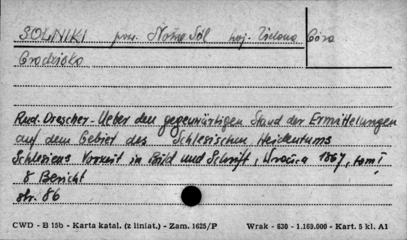 SOLNIKI pow. Nowa Sól woj. Zielona Góra
Grodzisko
Rud. Drescher - Ueber den gegenwärtigen Stand der Ermittelungen
auf dem Gebiet des Schlesischen Heidentums
Schlesiens Vorzeit in Bild und Schrift, Wrocław 1867, tom I
8 Bericht
str. 86
CWD - B 15b - Karta katal. (z liniat.) - Zam. 1625/P Wrak - 830 - 1.169.000 - Kart. 5 kl. A1